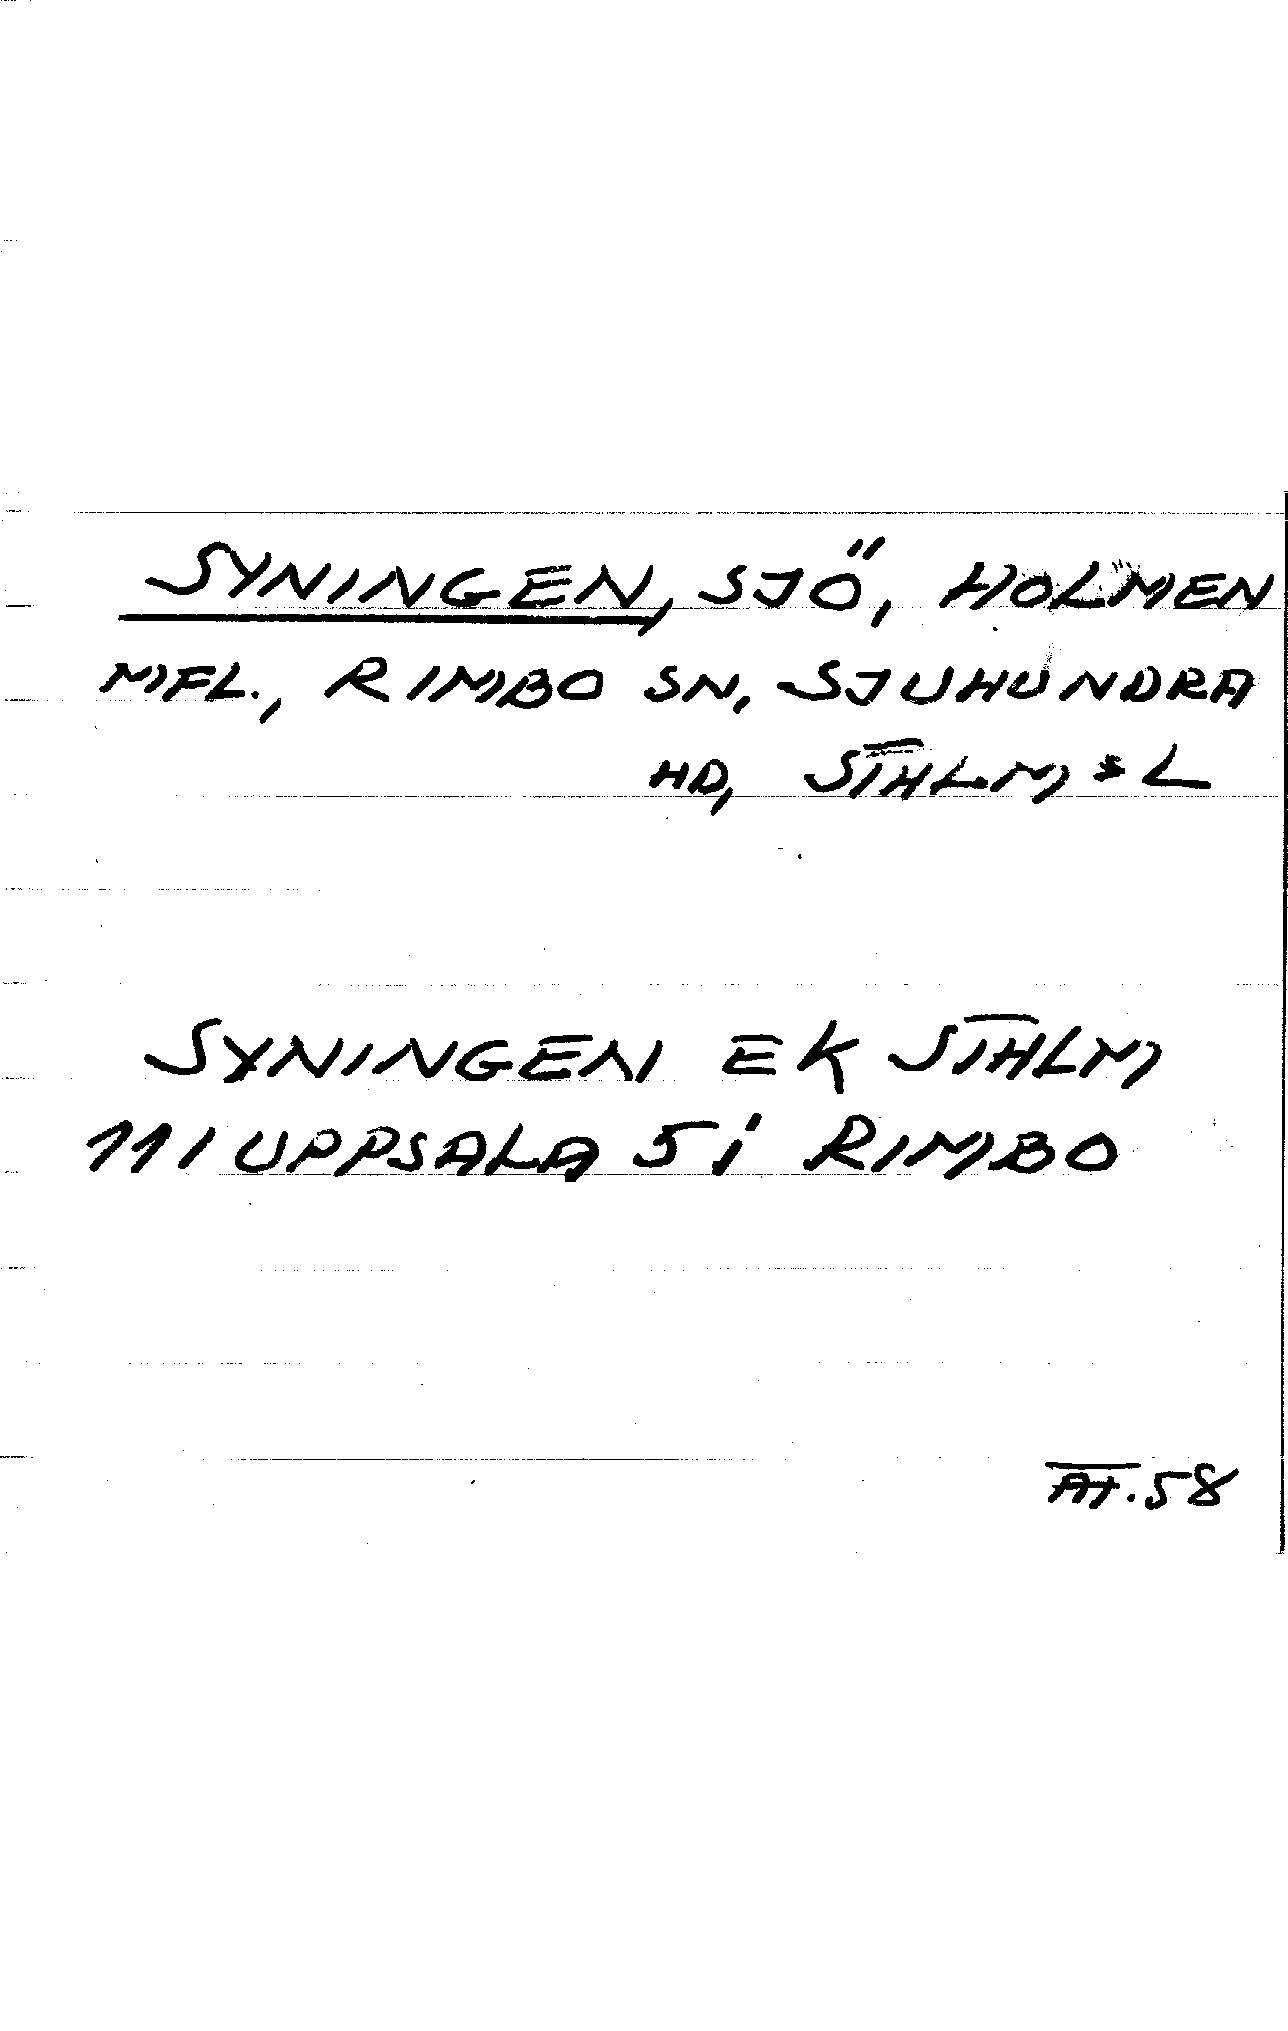 SYNINGEN, SJÖ, HOLMEN
MFL., RIMBO SN, SJUHUNDRA
HD, STHLMS L
SYNINGEN EK STHLM
111 UPPSALA 5 i RIMBO
AT. 58